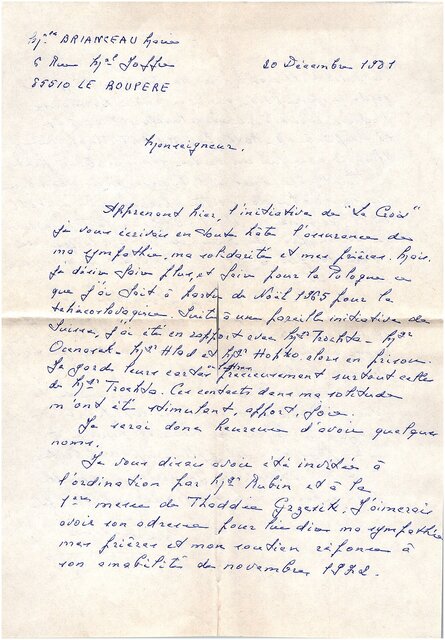 Mme BRIANCEAU Marie
6 Rue Mal Joffre
85510 LE BOUPERE
20 Décembre 1981
Monseigneur.
Apprenant hier, l'initiative de "La Croix"
je vous écrivais en toute hâte l'assurance de
ma sympathie, ma solidarité et mes prières. Mais
je désire faire plus, et faire pour la Pologne ce
que j'ai fait à partir de Noël 1965 pour la
tchécoslovaquie. Suite à une pareille initiative de
Suisse, j'ai été en rapport avec Mgr Trochta - Mgr
Ocenasek - Mgr Hlad et Mgr Hopko alors en prison.
Je garde leurs cartes et lettres précieusement surtout celles
de Mgr Trochta. Ces contacts dans ma solitude
m'ont été stimulant, apport, joie.
Je serai donc heureuse d'avoir quelques
noms.
Je vous disais avoir été invitée à
l'ordination par Mgr Rubin et à la
1ère messe de Thaddée J'aimerais
avoir son adresse pour lui dire ma sympathie
mes prières et mon soutien réponse à
son amabilité de novembre 1972.